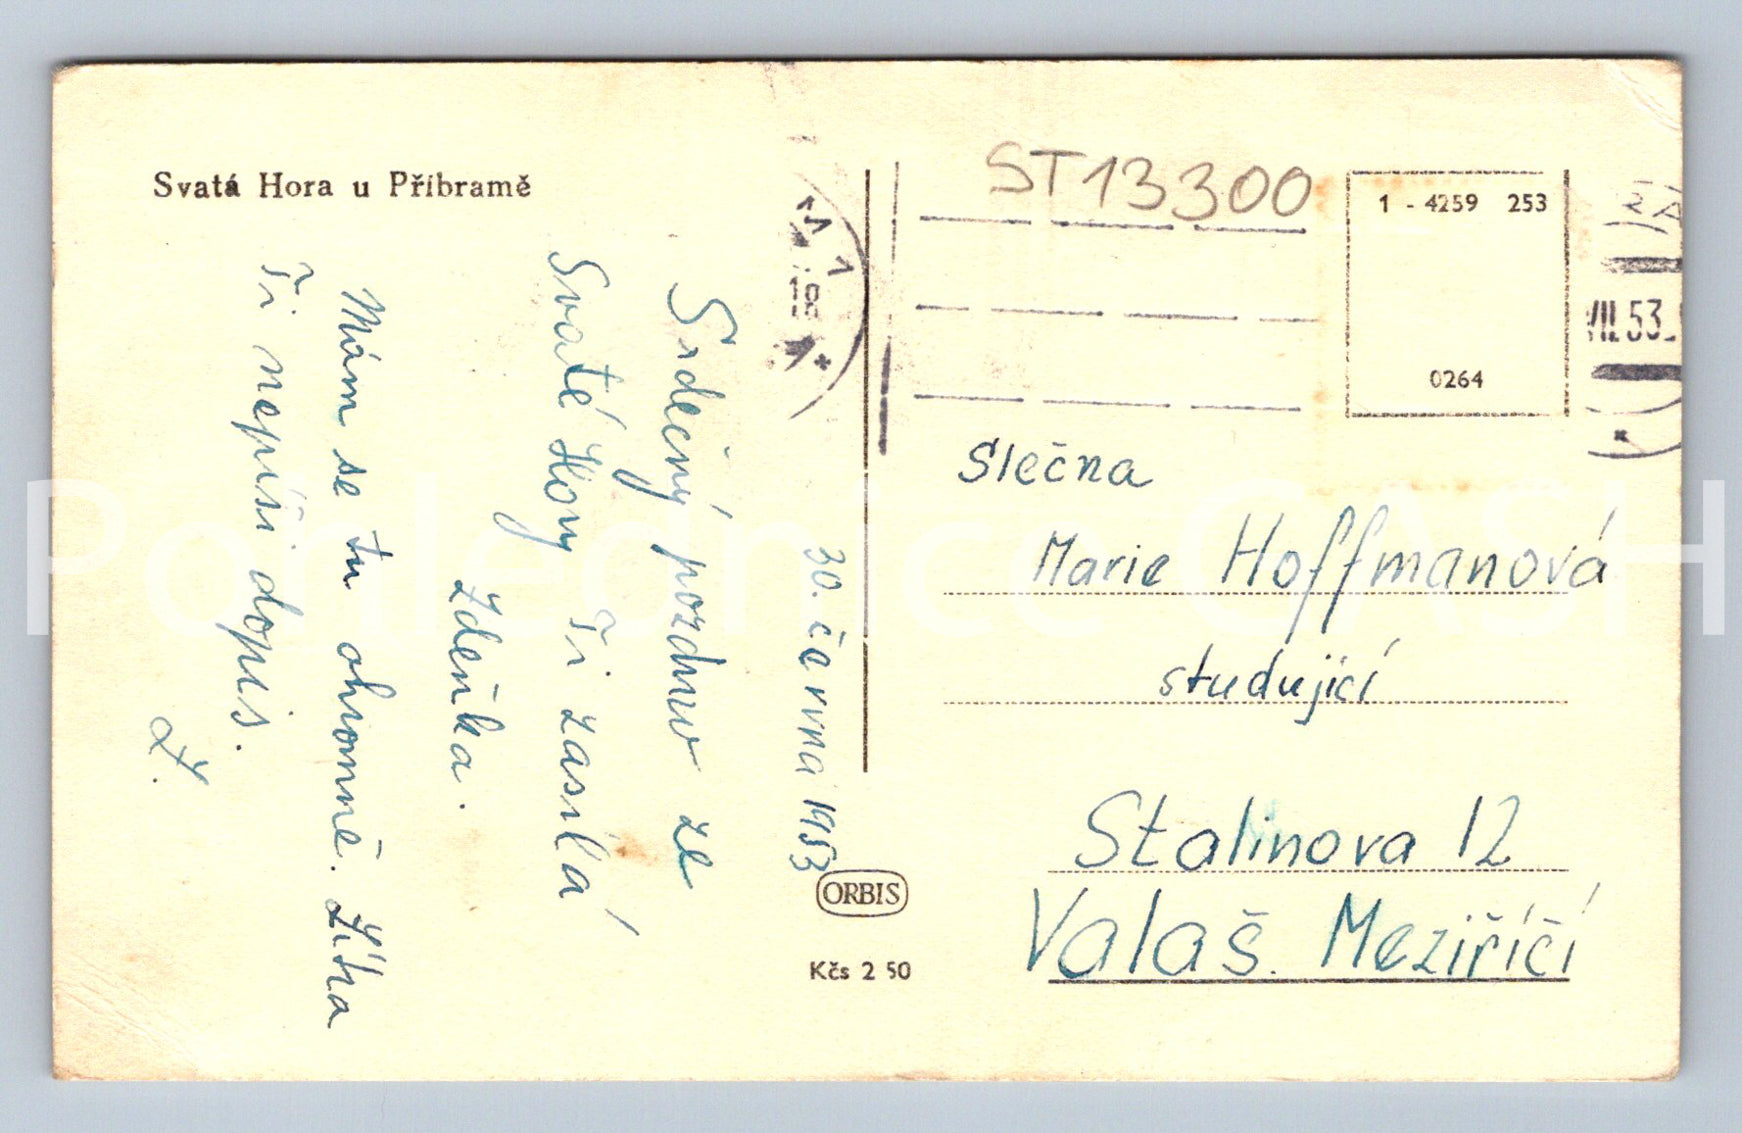 Svatá Hora u Příbramě
30. června 1953
Srdečný pozdrav ze
Svaté Hory Ti zasílá
Zdeňka.
Mám se tu ohromně. Zítra
Ti nepíši dopis.
Z.
ST13300
1 - 4259 253
0264
1
18
VII.53
Slečna
Marie Hoffmanová
studující
Stalinova 12
Valaš. Meziříčí
ORBIS
Kčs 2 50
Pohlednice CASH